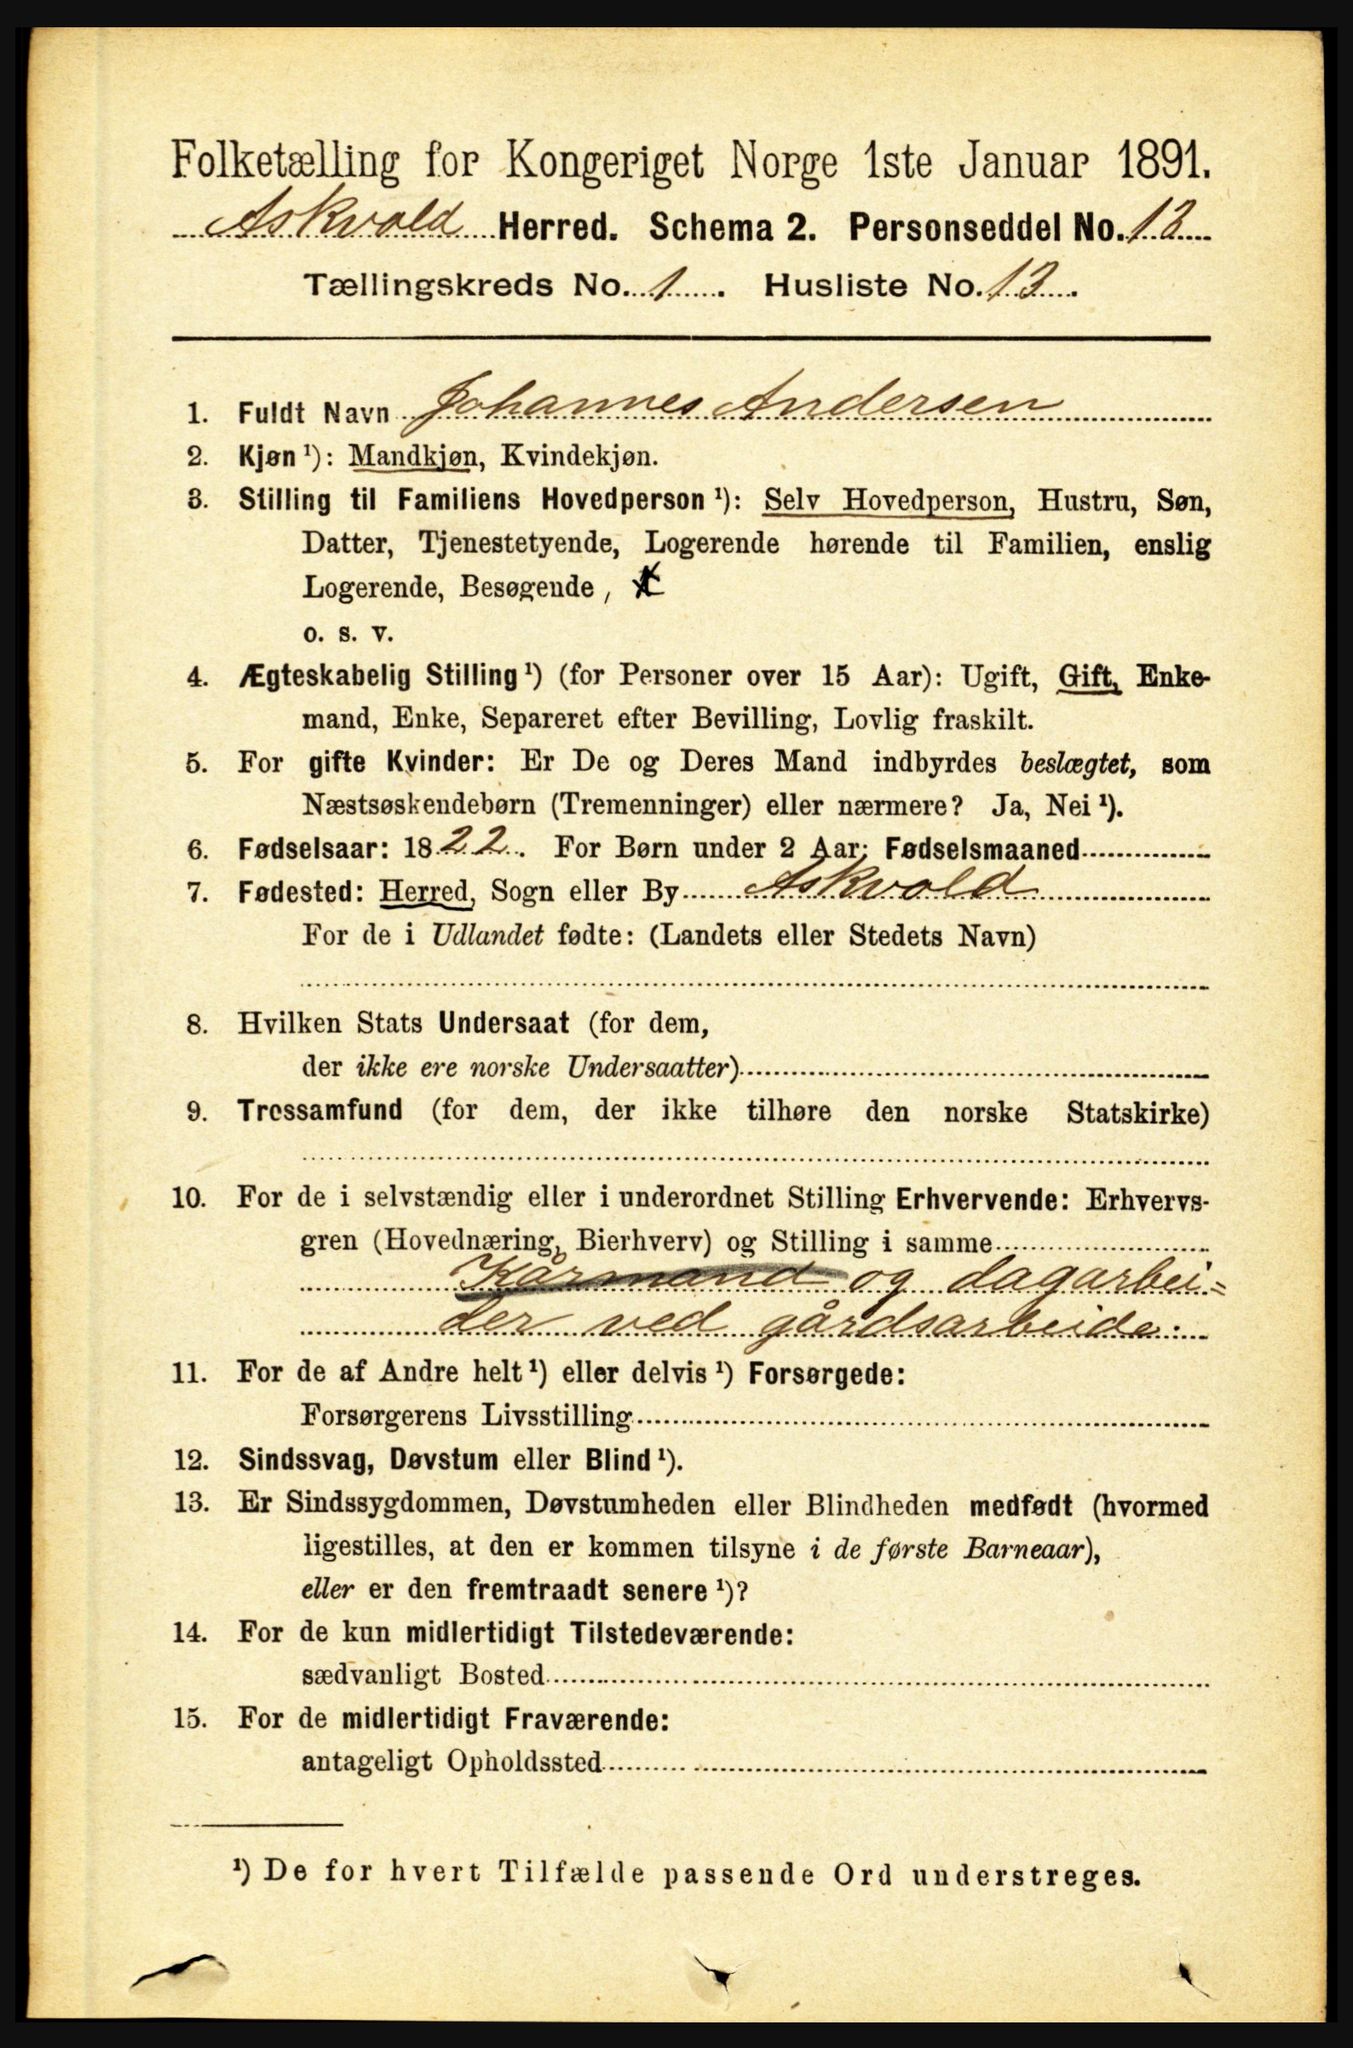 Folketælling for Kongeriget Norge 1ste Januar 1891.
Askvold Herred. Schema 2. Personseddel No. 12
Tællingskreds No. 1. Husliste No. 13.
1. Fuldt Navn Johannes Andersen
2. Kjøn ¹): Mandkjøn, Kvindekjøn.
3. Stilling til Familiens Hovedperson ¹): Selv Hovedperson, Hustru, Søn,
Datter, Tjenestetyende, Logerende hørende til Familien, enslig
Logerende, Besøgende,
o. s. v.
4. Ægteskabelig Stilling ¹) (for Personer over 15 Aar): Ugift, Gift, Enke-
mand, Enke, Separeret efter Bevilling, Lovlig fraskilt.
5. For gifte Kvinder: Er De og Deres Mand indbyrdes beslægtet, som
Næstsøskendebørn (Tremenninger) eller nærmere? Ja, Nei ¹).
6. Fødselsaar: 1822. For Børn under 2 Aar: Fødselsmaaned
7. Fødested: Herred, Sogn eller By Askvold
For de i Udlandet fødte: (Landets eller Stedets Navn)
8. Hvilken Stats Undersaat (for dem,
der ikke ere norske Undersaatter)
9. Trossamfund (for dem, der ikke tilhøre den norske Statskirke)
10. For de i selvstændig eller i underordnet Stilling Erhvervende: Erhvervs-
gren (Hovednæring, Bierhverv) og Stilling i samme
Kårmand og dagarbei=
der ved gårdsarbeide.
11. For de af Andre helt ¹) eller delvis ¹) Forsørgede:
Forsørgerens Livsstilling
12. Sindssvag, Døvstum eller Blind ¹).
13. Er Sindssygdommen, Døvstumheden eller Blindheden medfødt (hvormed
ligestilles, at den er kommen tilsyne i de første Barneaar),
eller er den fremtraadt senere ¹)?
14. For de kun midlertidigt Tilstedeværende:
sædvanligt Bosted
15. For de midlertidigt Fraværende:
antageligt Opholdssted
¹) De for hvert Tilfælde passende Ord understreges.